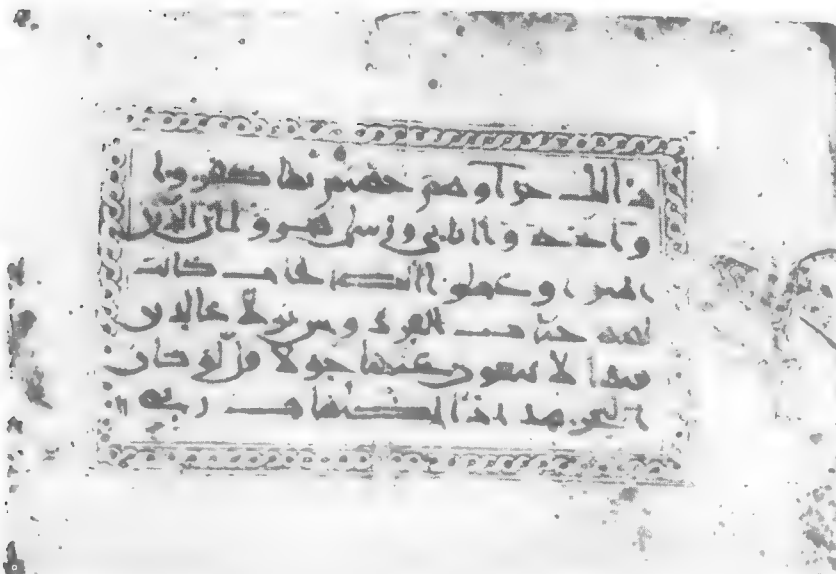 ذالك جزاوهم جهنم بما كفروا
واتخذوا اياتى ورسلى هزوا ان الذين
امنوا وعملوا الصالحات كانت
لهم جنات الفردوس نزلا خالدين
فيها لا يبغون عنها حولا قل لو كان
البحر مدادا لكلمات ربى